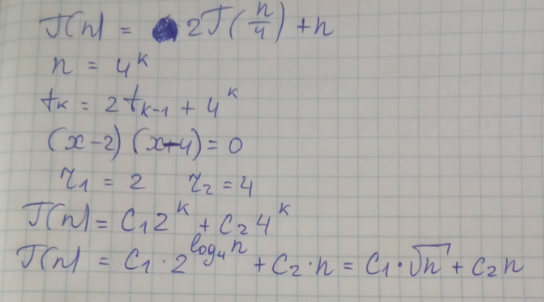 T(n) = 2T(n/4) + n
n = 4^k
t_k = 2t_{k-1} + 4^k
(x-2)(x-4) = 0
r_1 = 2 r_2 = 4
T(n) = C_1 2^k + C_2 4^k
T(n) = C_1 · 2^{log_4 n} + C_2 · n = C_1 · √n + C_2 n